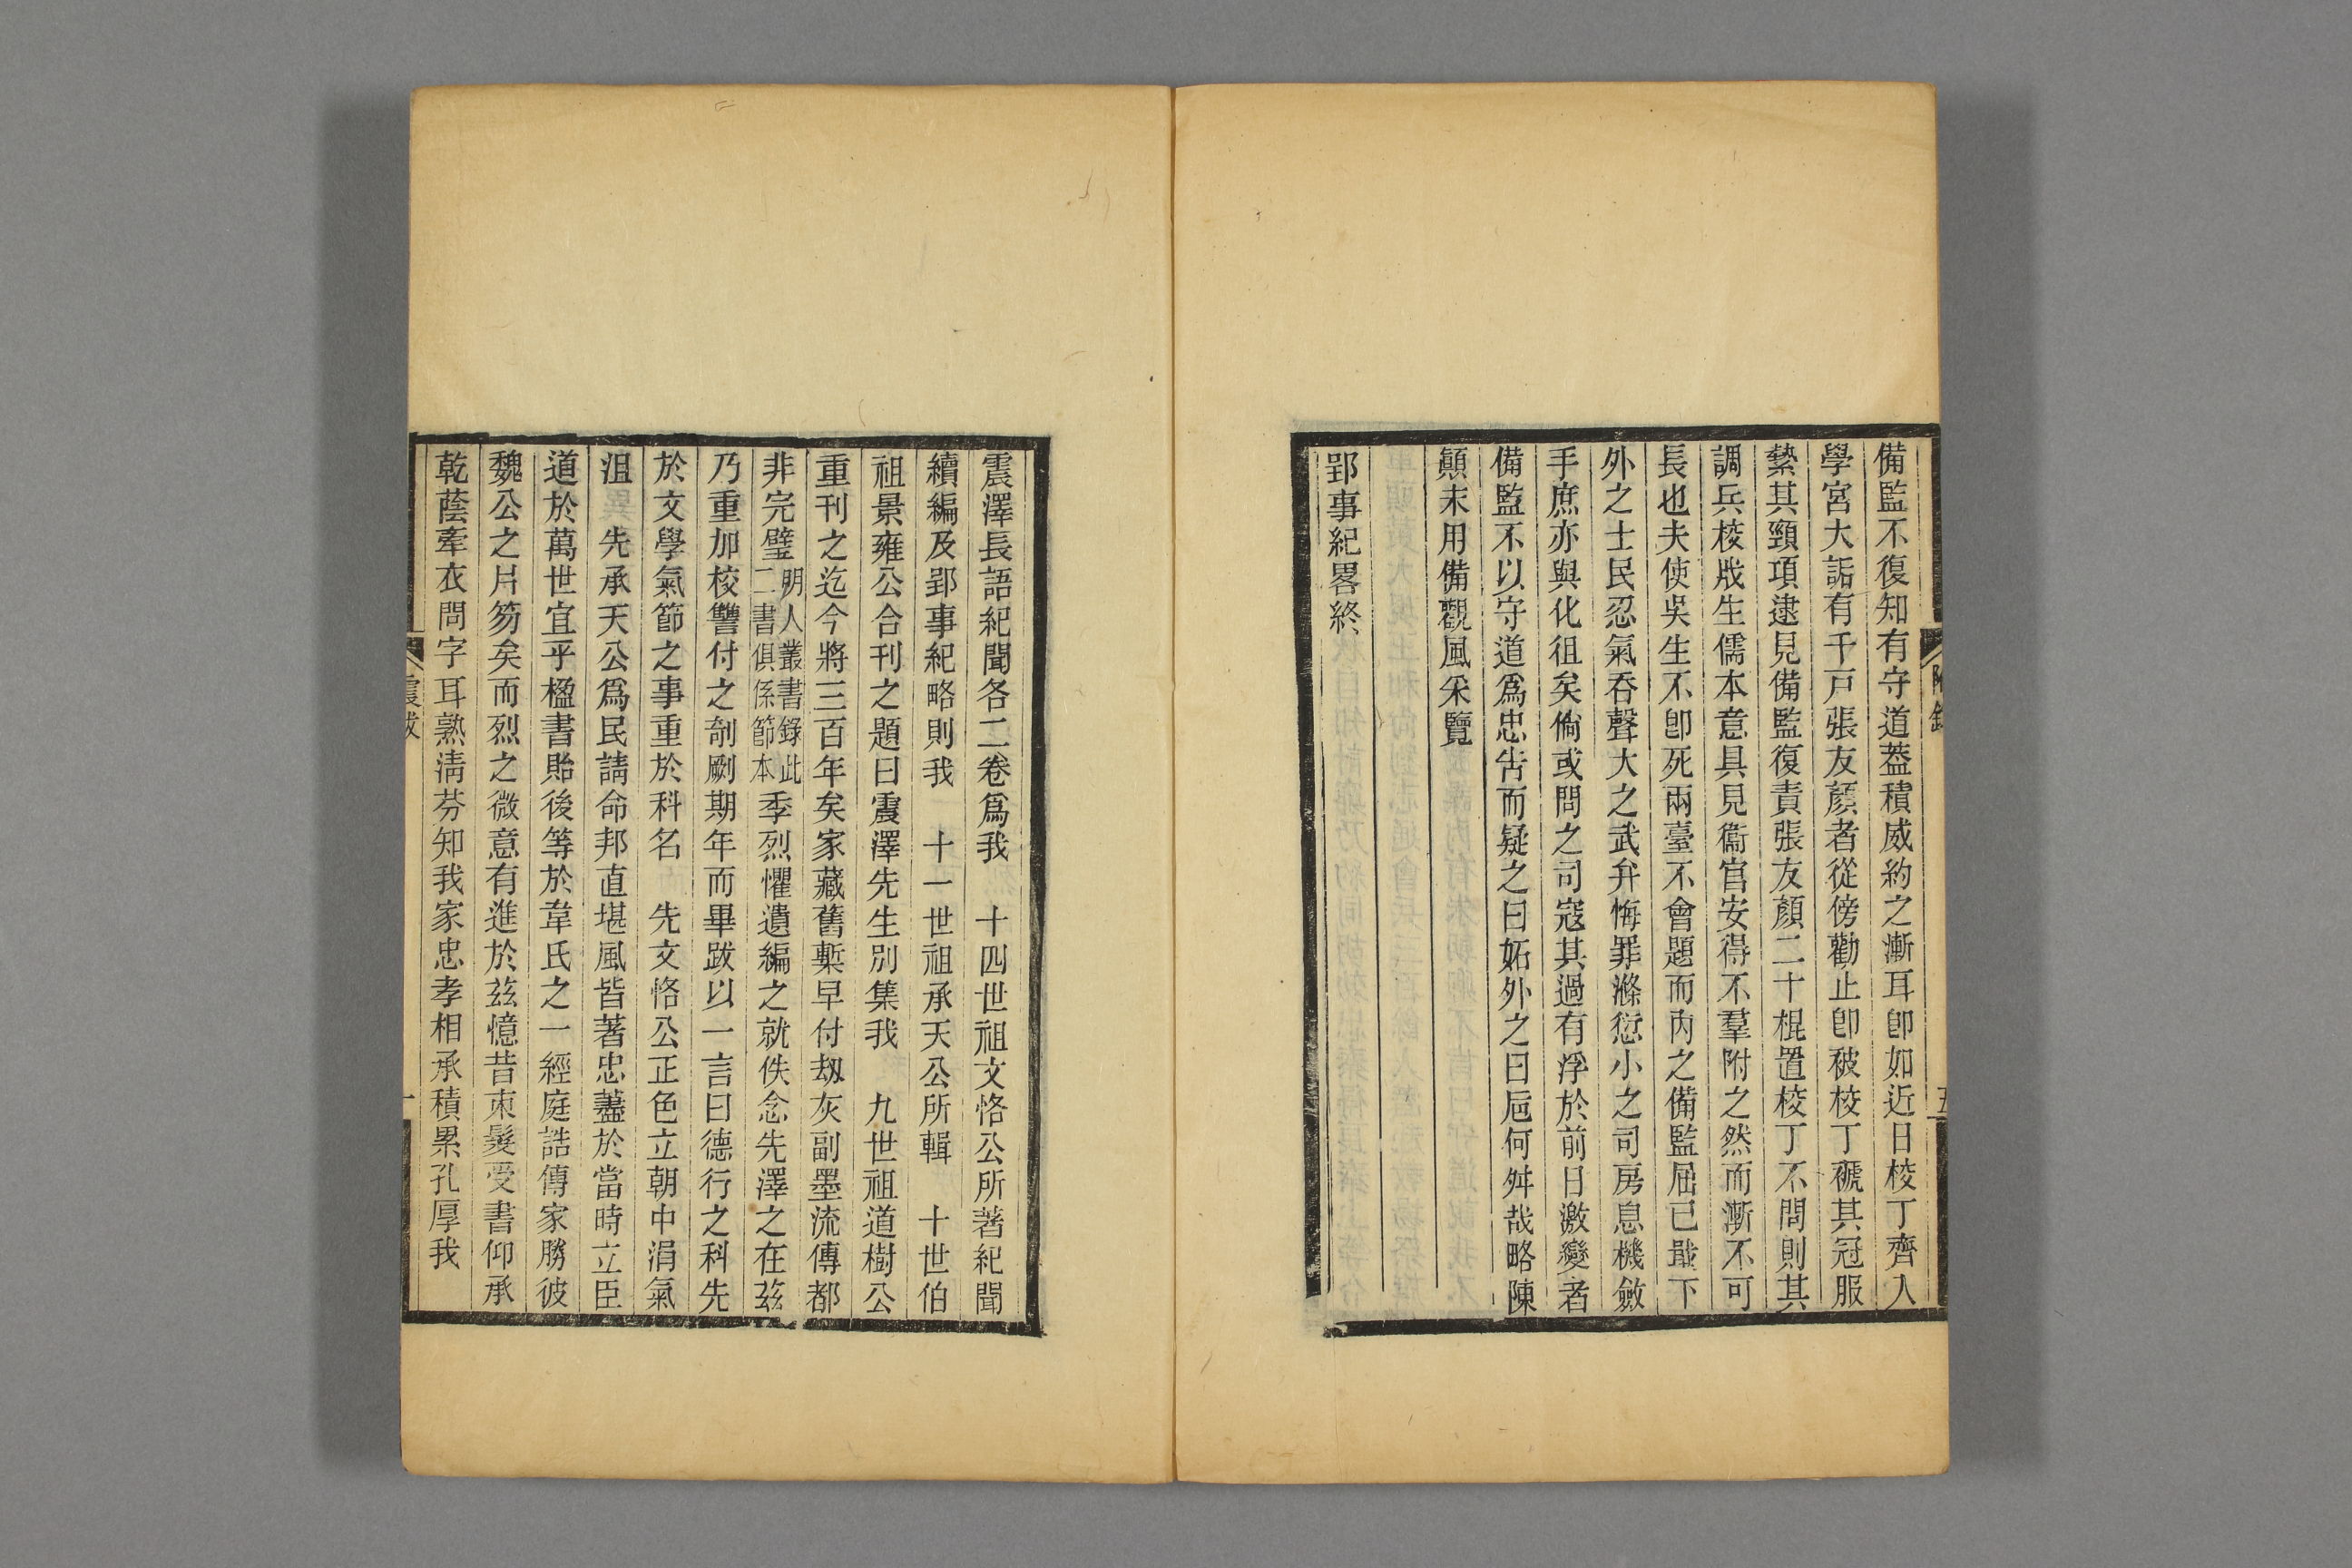 備監不復知有守道葢積威約之漸耳卽如近日校丁齊入
學宮大詬有千戸張友顏者從傍勸止卽被校丁褫其冠服
縶其頸項逮見備監復責張友顏二十棍置校丁不問則其
調兵校戕生儒本意具見衞官安得不羣附之然而漸不可
長也夫使吳生不卽死兩臺不會題而內之備監屈已戢下
外之士民忍氣吞聲大之武弁悔罪滌愆小之司房息機斂
手庶亦與化徂矣倘或問之司寇其過有浮於前日激變者
備監不以守道爲忠告而疑之曰妬外之曰巵何舛哉略陳
顚末用備觀風采覽
郢事紀畧終
附錄
五
震澤長語紀聞各二卷爲我　十四世祖文恪公所著紀聞
續編及郢事紀略則我　十一世祖承天公所輯　十世伯
祖景雍公合刊之題曰震澤先生別集我　九世祖道樹公
重刊之迄今將三百年矣家藏舊槧早付刼灰副墨流傳都
非完璧明人叢書錄此二書俱係節本季烈懼遺編之就佚念先澤之在茲
乃重加校讐付之剞劂期年而畢跋以一言曰德行之科先
於文學氣節之事重於科名　先文恪公正色立朝中涓氣
沮　先承天公爲民請命邦直堪風皆著忠藎於當時立臣
道於萬世宜乎楹書貽後等於韋氏之一經庭誥傳家勝彼
魏公之片笏矣而烈之微意有進於茲憶昔束髮受書仰承
乾蔭牽衣問字耳熟淸芬知我家忠孝相承積累孔厚我
震跋
一